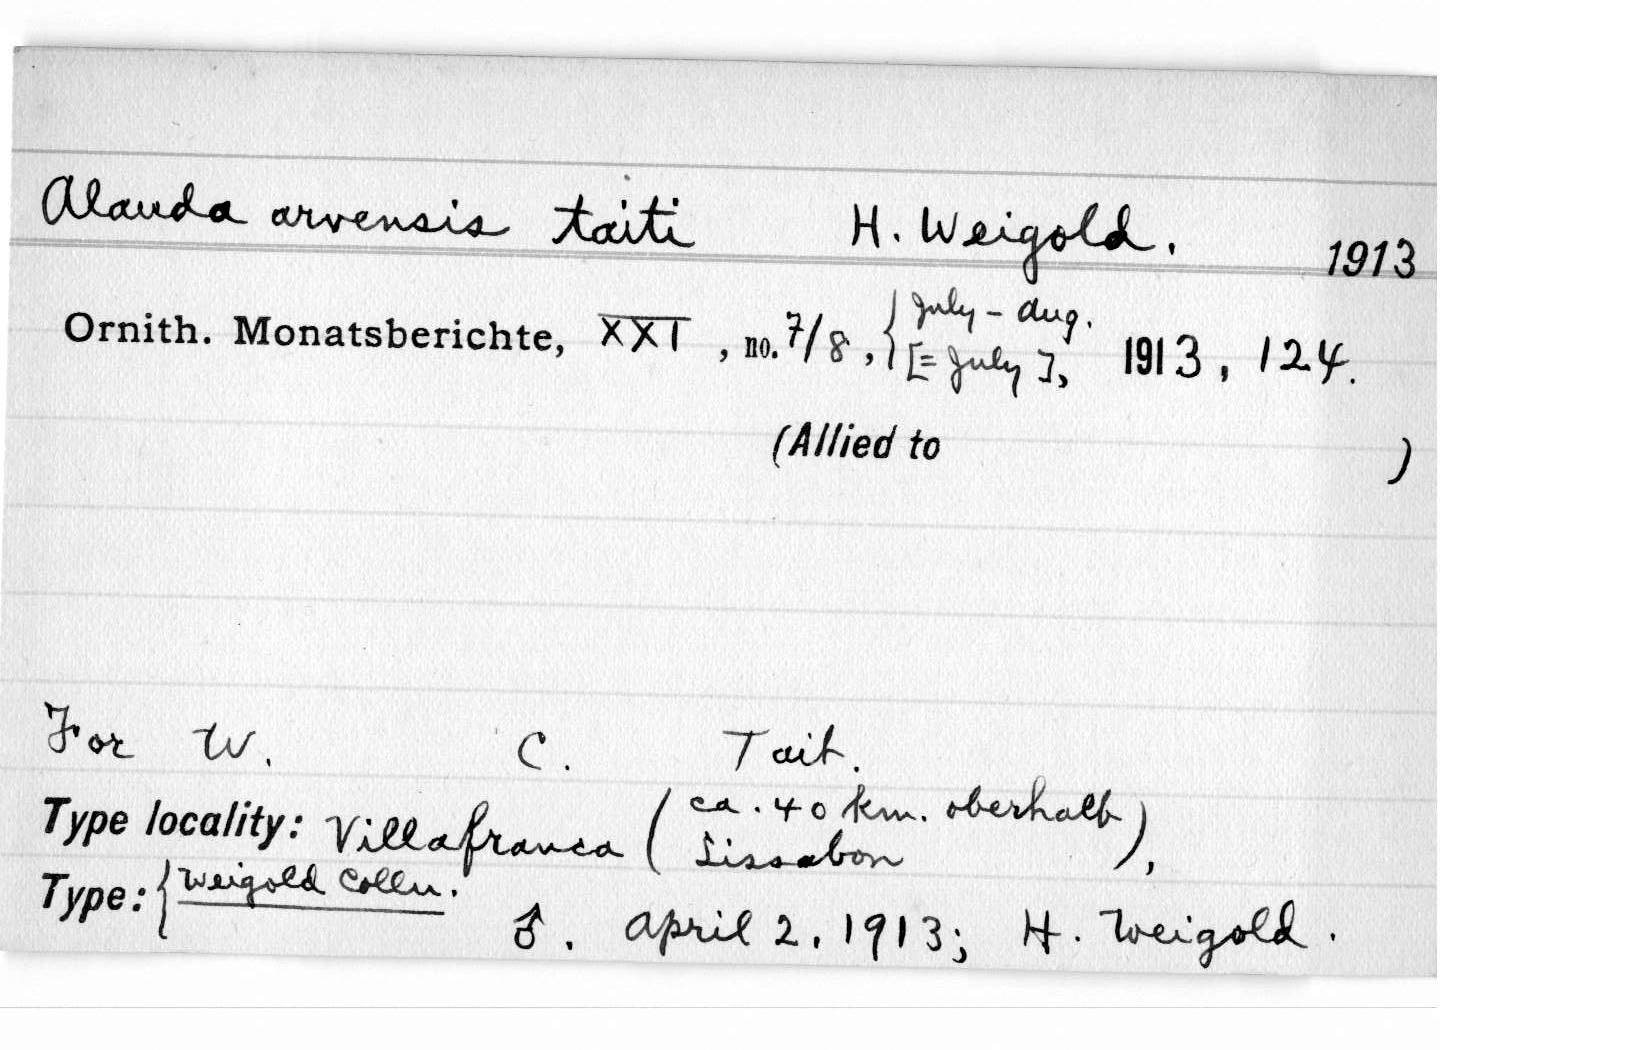 Alauda arvensis taiti H. Weigold. 1913
Ornith. Monatsberichte, XXI, no. 7/8, { July - Aug. [= July], 1913, 124.
(Allied to )
For W. C. Tait.
Type locality: Villafranca (ca. 40 km. oberhalb Lissabon),
Type: { Weigold Colln. ♂. April 2, 1913; H. Weigold.